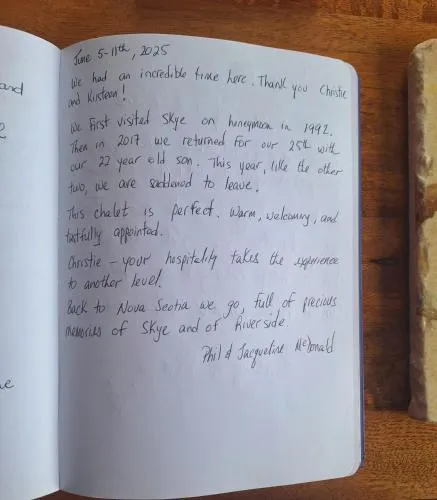 and
2
June 5-11th, 2025
We had an incredible time here. Thank you Christie
and Kirsteen!
We first visited Skye on honeymoon in 1992.
Then in 2017 we returned for our 25th with
our 22 year old son. This year, like the other
two, we are saddened to leave.
This chalet is perfect. Warm, welcoming, and
tastfully appointed.
Christie - your hospitality takes the experience
to another level.
Back to Nova Scotia we go, full of precious
memories of Skye and of Riverside.
Phil & Jacqueline McDonald